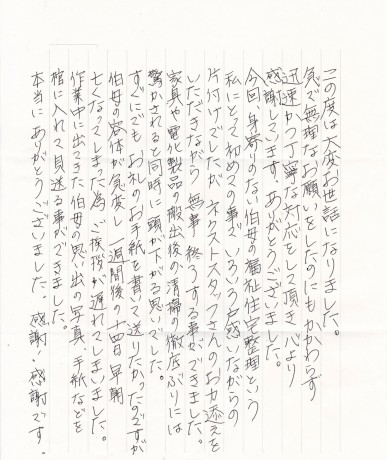 この度は大変お世話になりました。
急で無理なお願いをしたのにもかかわらず
迅速かつ丁寧な対応をして頂き心より
感謝しています。ありがとうございました。
今回、身寄りのない伯母の福祉住宅整理という
私にとって初めての事で、いろいろ戸惑いながらの
片付けでしたが ネクストスタッフさんのお力添えを
いただきながら 無事 終了する事ができました。
家具や電化製品の搬出後の清掃の徹底ぶりには
驚かされると同時に頭が下がる思いでした。
すぐにでも お礼のお手紙を書いて送りたかったのですが
伯母の容体が急変し 一週間後の十四日 早朝
亡くなってしまった為 ご挨拶が遅れてしまいました。
作業中に出てきた伯母の思い出の写真、手紙などを
棺に入れて見送る事ができました。
本当に ありがとうございました。感謝！感謝です。